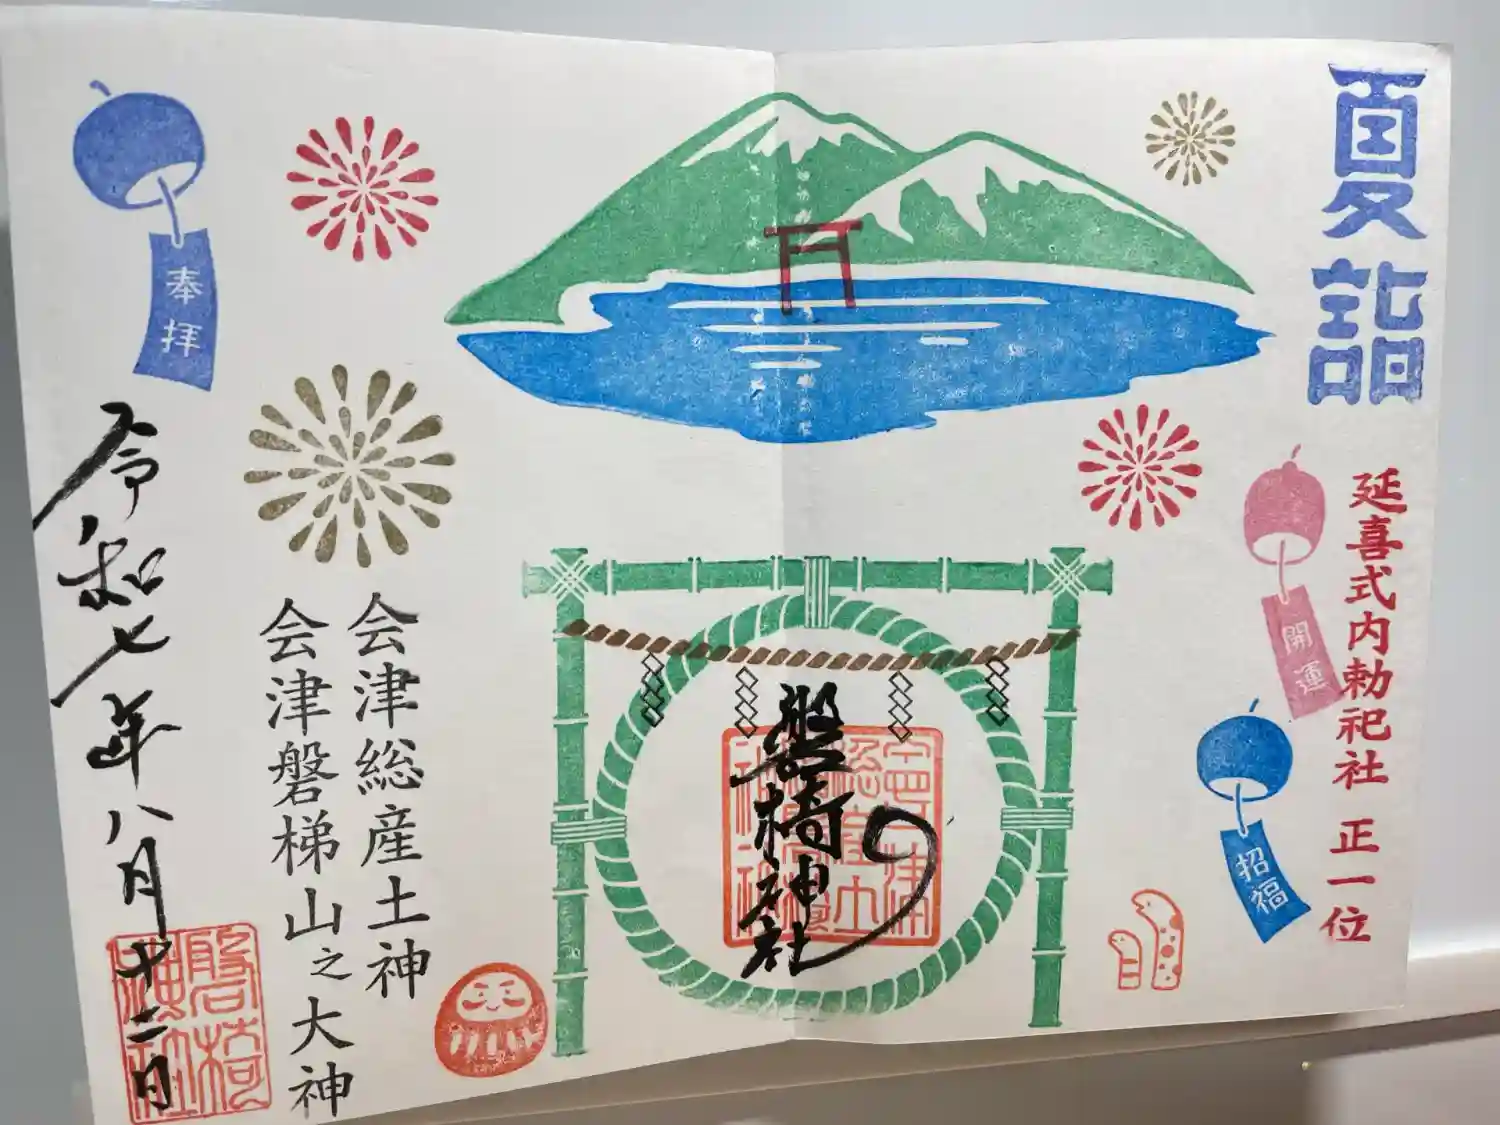 夏詣
延喜式内勅祀社 正一位
開運
招福
磐椅神社
会津総産土神
会津磐梯山之大神
奉拝
令和七年八月十二日